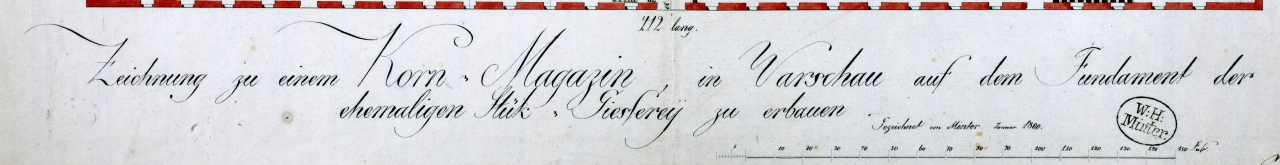 112' lang.
Zeichnung zu einem Korn-Magazin, in Varschau auf dem Fundament der
ehemaligen Stük-Giesserey zu erbauen.
Gezeichnet von Menter Januar 1800.
W:H:
Minter.
10 20 30 40 50 60 70 80 90 100 110 120 130 140 150